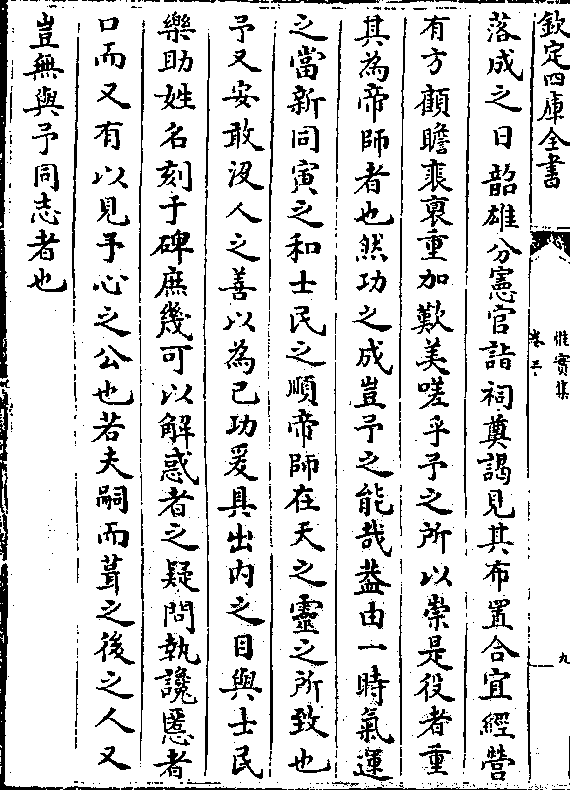 欽定四庫全書
惟實集
卷三
九
落成之日韶雄分憲官詣祠奠謁見其布置合宜經營
有方顧瞻裵褱重加歎美嗟乎予之所以崇是役者重
其為帝師者也然功之成豈予之能哉葢由一時氣運
之當新同寅之和士民之順帝師在天之靈之所致也
予又安敢没人之善以為己功爰具出内之目與士民
樂助姓名刻于碑庶幾可以解惑者之疑問執讒慝者
口而又有以見予心之公也若夫嗣而葺之後之人又
豈無與予同志者也